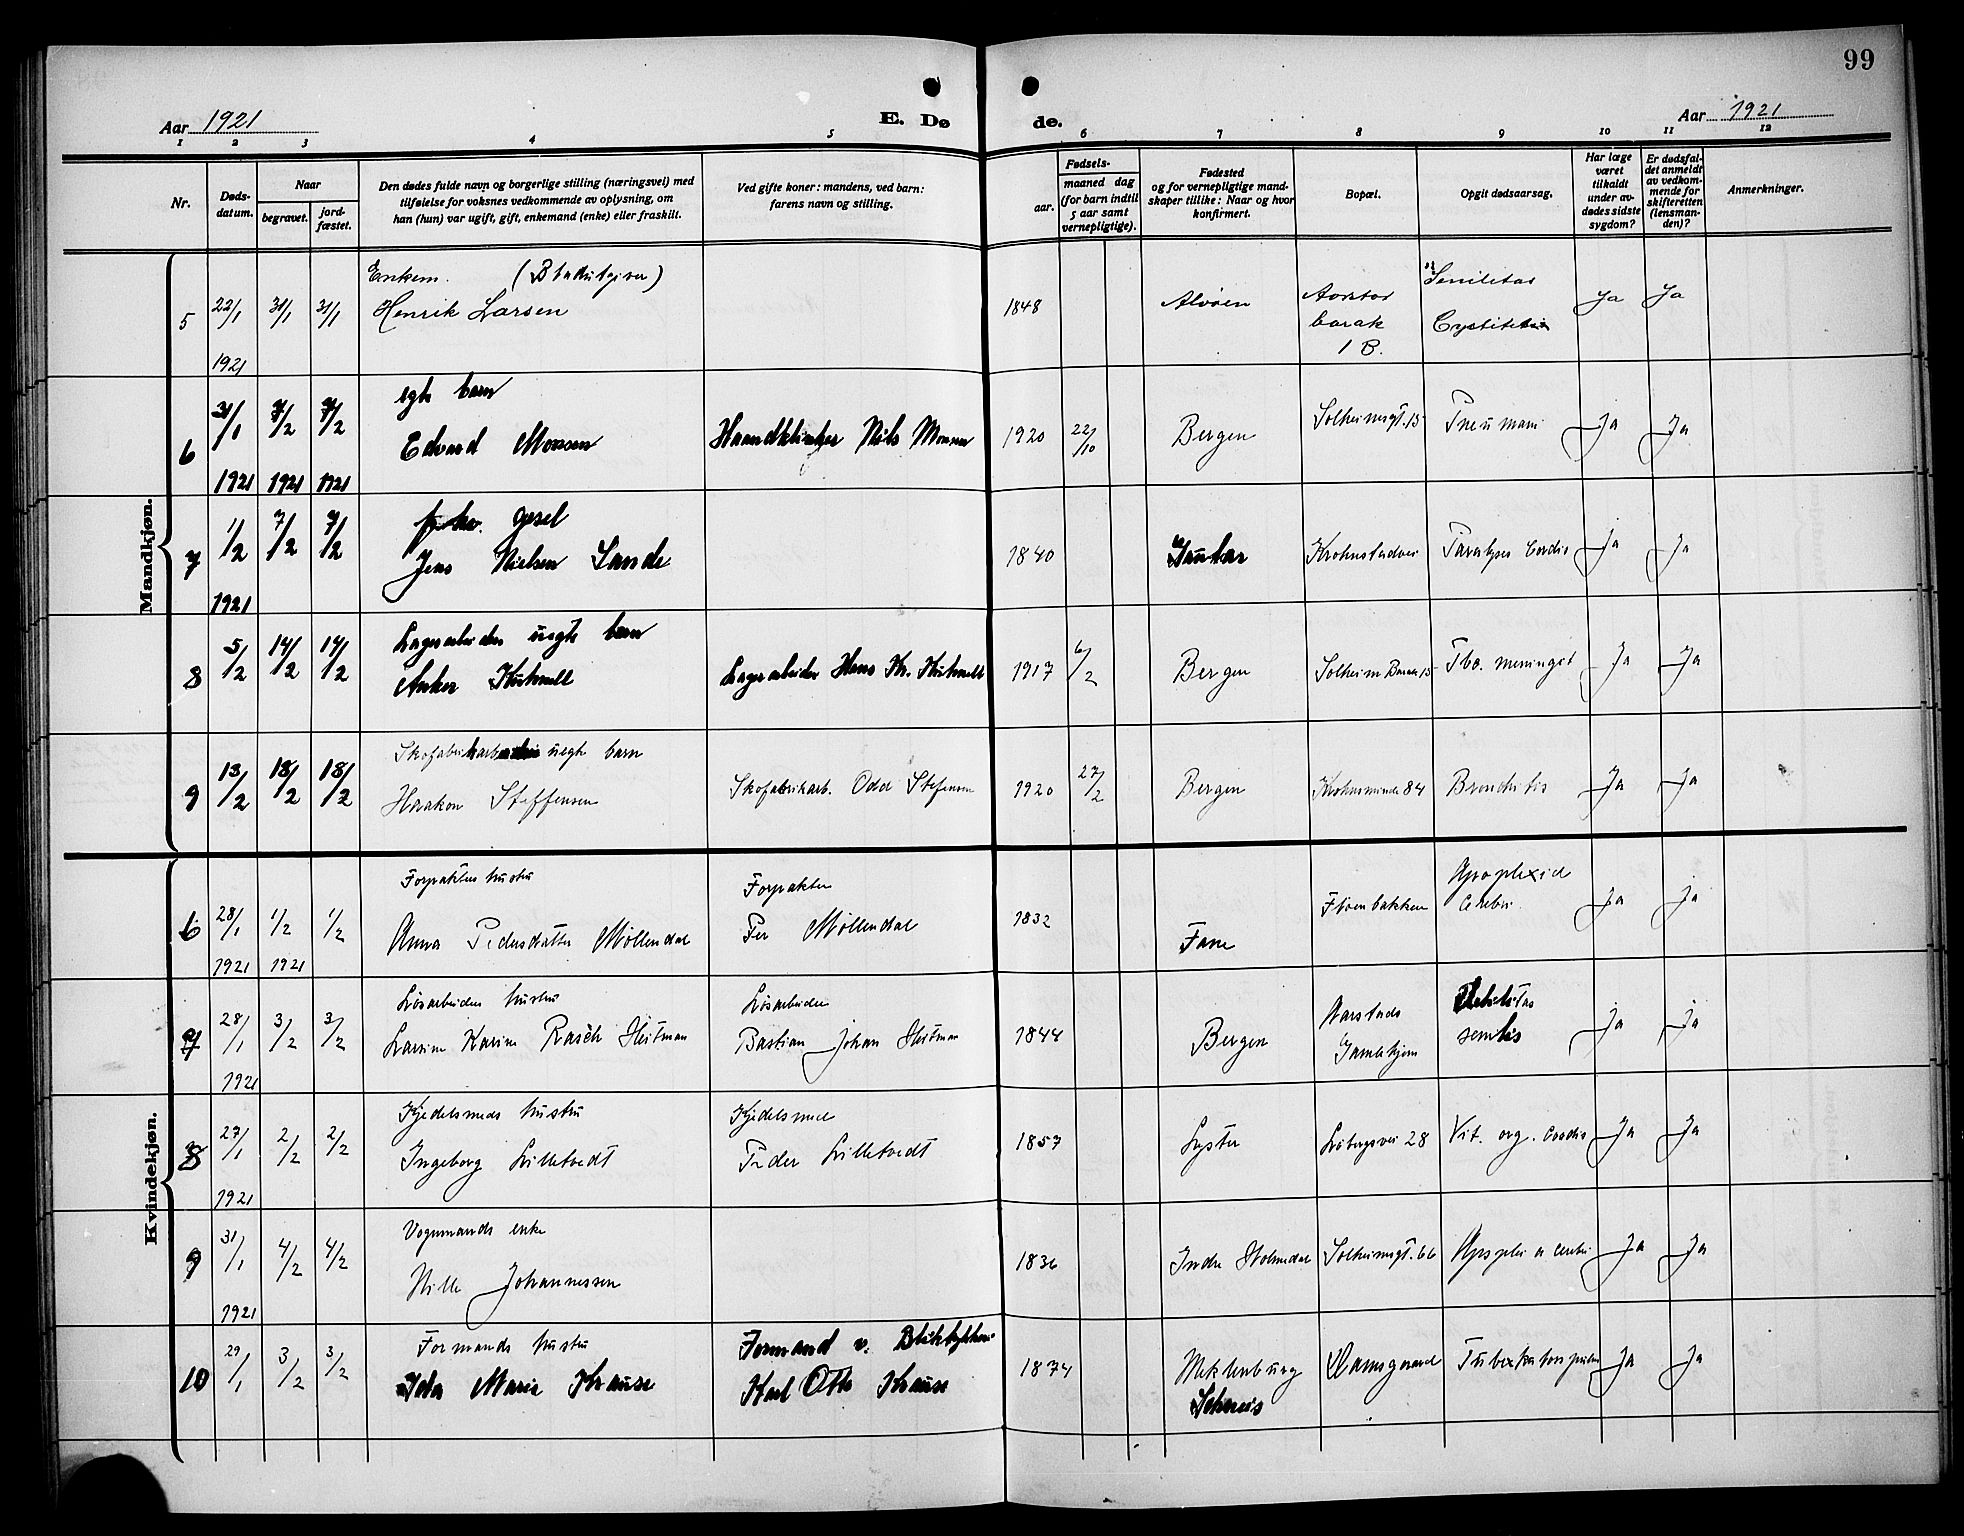 99
Aar 1921
E. Dø
de.
Aar 1921
1 2 3 4 5 6 7 8 9 10 11 12
Nr.
Døds-
datum.
Naar
begravet.
jord-
fæstet.
Den dødes fulde navn og borgerlige stilling (næringsvei) med
tilføielse for voksnes vedkommende av oplysning, om
han (hun) var ugift, gift, enkemand (enke) eller fraskilt.
Ved gifte koner: mandens, ved barn:
farens navn og stilling.
Fødsels-
aar.
maaned dag
(for barn indtil
5 aar samt
vernepligtige).
Fødested
og for vernepligtige mand-
skaper tillike: Naar og hvor
konfirmert.
Bopæl.
Opgit dødsaarsag.
Har læge
været
tilkaldt
under av-
dødes sidste
sygdom?
Er dødsfal-
det anmeldt
av vedkom-
mende for
skifteretten
(lensman-
den)?
Anmerkninger.
Mandkjøn.
Enkem.
5 22/1 31/1 31/1 Henrik Larsen 1848 Alvøen Aarstad Senilitas Ja Ja
barak Cystitis
1 B.
1921
egte barn
6 31/1 7/2 7/2 Edvard Monsen Nils Monsen 1920 22/10 Bergen Solheimsgt. 15 Pneumoni Ja Ja
1921 1921 1921
7 1/2 7/2 7/2 Jens Nielsen Sande 1840 Gaular Krohnstadvei Paralyses Cordis Ja Ja
1921
Lagerarbeider uegte barn
8 5/2 14/2 14/2 Anker Lagerarbeider Hans Kr. 1917 6/2 Bergen Solheim Barak 15 Tbc. meningit Ja Ja
Skofabrikarbeider uegte barn
9 13/2 18/2 18/2 Haakon Steffensen Skofabrikarb. Odd Stefensen 1920 27/2 Bergen Krohnsminde 84 Bronchitis Ja Ja
Kvindekjøn.
Forpakters hustru Forpakter
6 28/1 1/2 1/2 Anna Pedersdatter Møllendal Per Møllendal 1832 Fane Fløenbakken Apoplexia Ja Ja
cerebri.
1921 1921
Løsarbeiders hustru Løsarbeider
7 28/1 3/2 3/2 Larsine Karine Rasch Heitman Bastian Johan Heitman 1844 Bergen Aarstads Debilitas Ja Ja
Gamlehjem senilis
1921
Kjedelsmeds hustru Kjedelsmed
8 27/1 2/2 2/2 Ingeborg Lilletvedt Peder Lilletvedt 1857 Lyster Løbergsvei 28 Vit. org. Cordis Ja Ja
1921
Vognmands enke
9 31/1 4/2 4/2 Nille Johannessen 1836 Indre Holmedal Solheimsgt. 66 Apoplexia cerebri Ja Ja
1921
Formands hustru Formand v.
10 29/1 3/2 3/2 Ida Marie Krause Karl Otto Krause 1874 Meklenburg Damsgaard Ja Ja
Schwerin